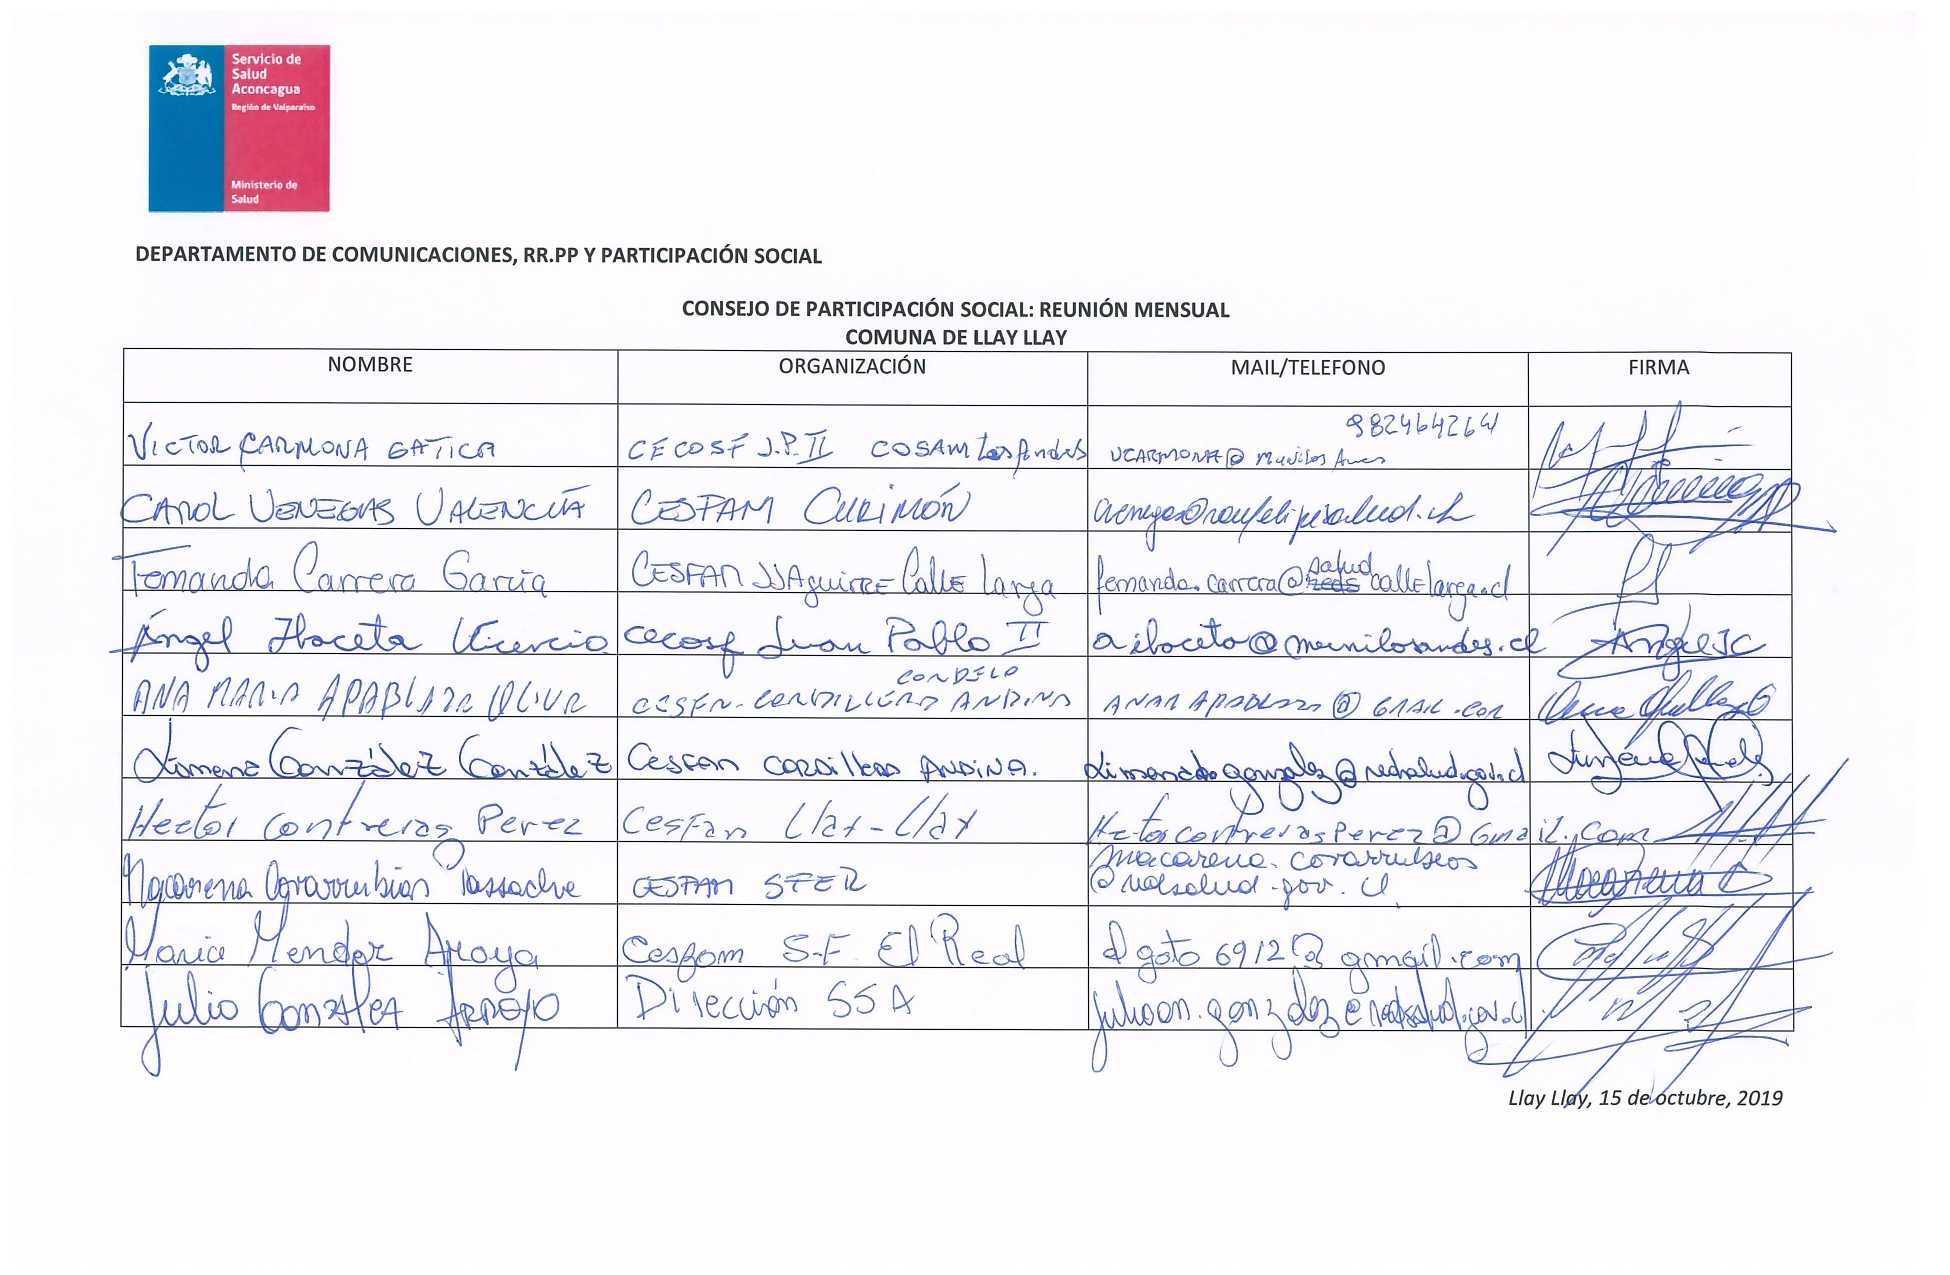 Servicio de
Salud
Aconcagua
Región de Valparaíso
Ministerio de
Salud
DEPARTAMENTO DE COMUNICACIONES, RR.PP Y PARTICIPACIÓN SOCIAL
CONSEJO DE PARTICIPACIÓN SOCIAL: REUNIÓN MENSUAL
COMUNA DE LLAY LLAY
NOMBRE ORGANIZACIÓN MAIL/TELEFONO FIRMA
VICTOR CARMONA GATICA CECOSF J.P. II COSAM Los Andes 982464264 VCARMONA@
CAROL VENEGAS VALENCIA CESFAM CURIMÓN
Fernanda Carrera García CESFAM JJAguirre Calle Larga fernanda.carrera@salud calle larga.cl
Ángel Ibaceta Vicencio cecosf Juan Pablo II aibaceta@munilosandes.cl Angel IC
ANA MARIA APABLAZA OLIVA CONDELO CESFN. CORDILLERA ANDINA
Ximena González González Cesfan CORDILLERA ANDINA.
Hector Contreras Perez Cesfan Llay-Llay Hectorcontrerasperez@Gmail.com
Macarena Covarrubias CESFAM SFER macarena.covarrubias @redsalud.gov.cl Macarena C
Maria Mendez Araya Cesfam S.F El Real elgato6912@gmail.com
Julio GONZALEZ ARROYO Dirección SSA julioan.gonzalez@redsalud.gov.cl
Llay Llay, 15 de octubre, 2019